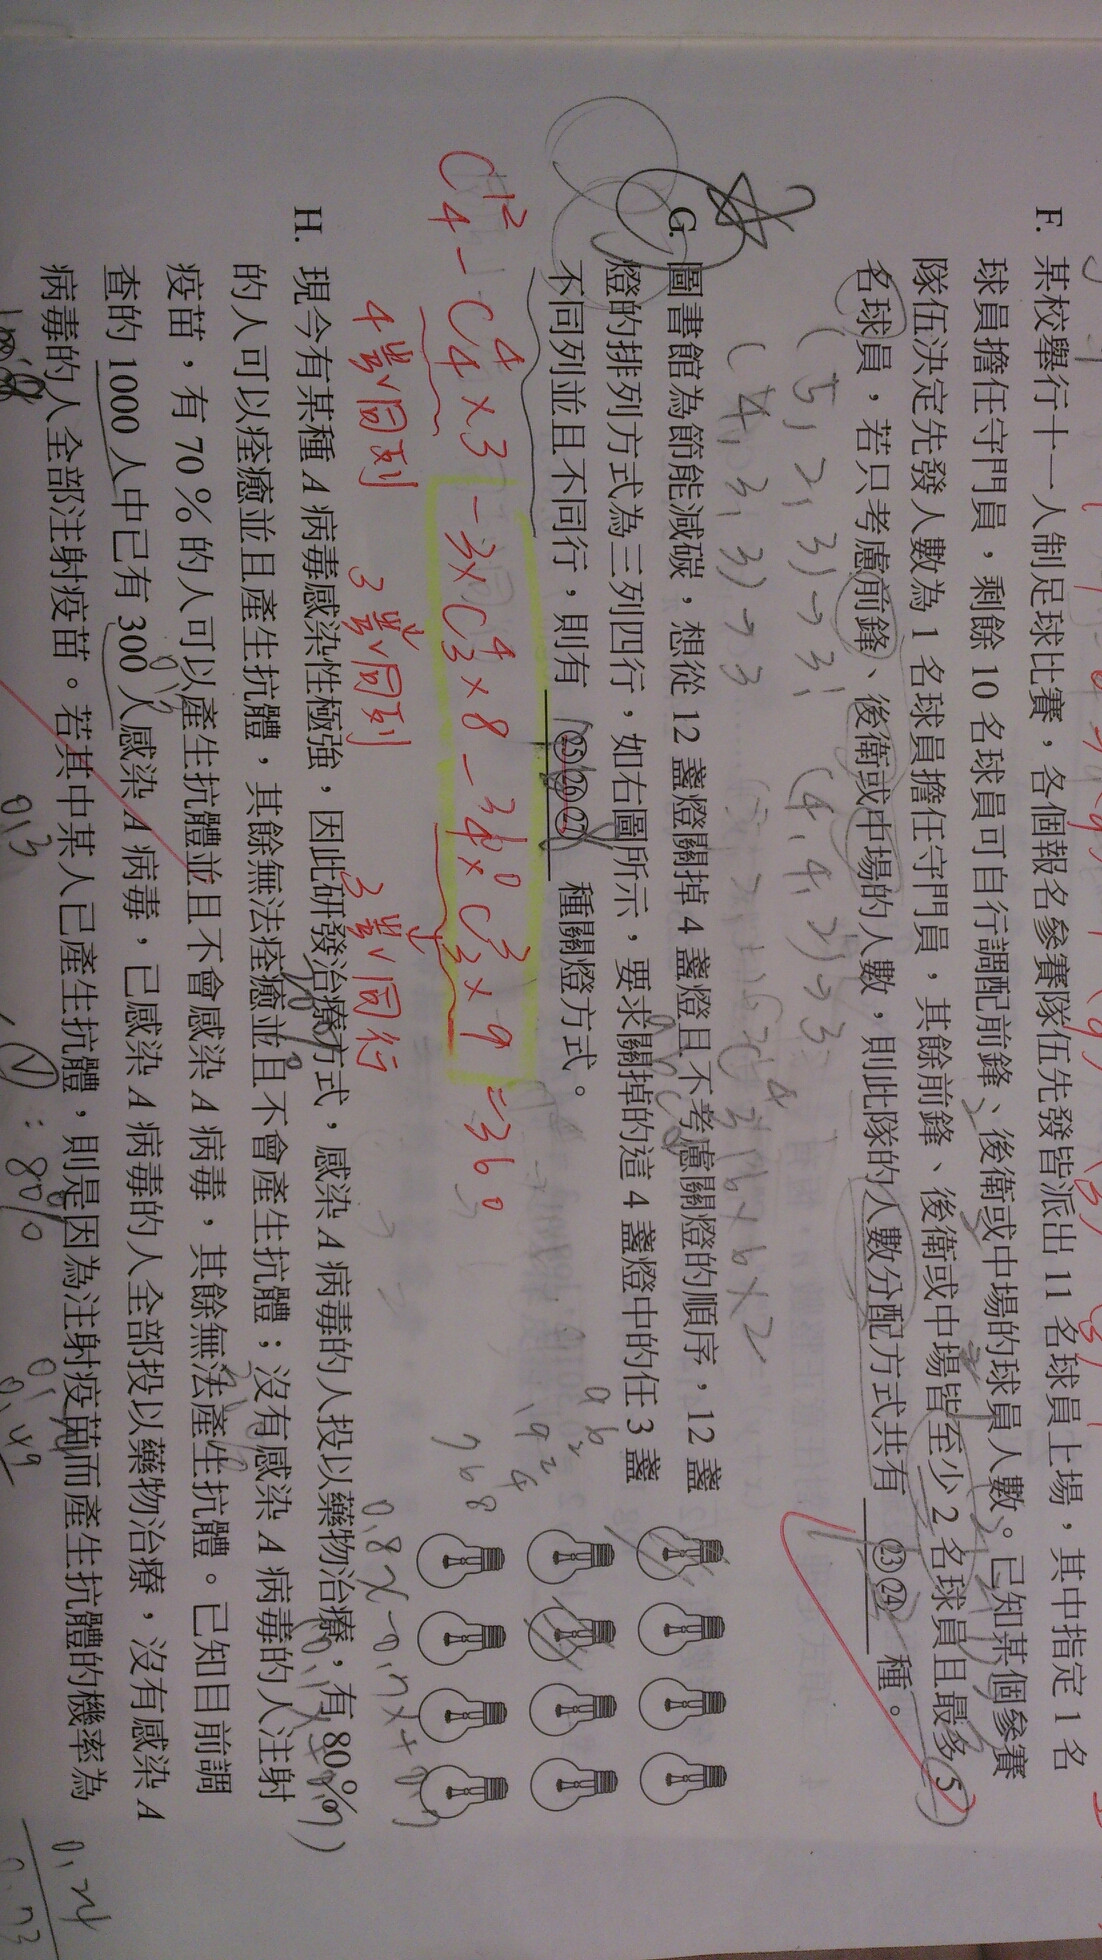 F. 某校舉行十一人制足球比賽，各個報名參賽隊伍先發皆派出 11 名球員上場，其中指定 1 名
球員擔任守門員，剩餘 10 名球員可自行調配前鋒、後衛或中場的球員人數。已知某個參賽
隊伍決定先發人數為 1 名球員擔任守門員，其餘前鋒、後衛或中場皆至少 2 名球員且最多 5
名球員，若只考慮前鋒、後衛或中場的人數，則此隊的人數分配方式共有 ㉓㉔ 種。
(5, 2, 3) → 3! (4, 4, 2) → 3
(4, 3, 3) → 3
G. 圖書館為節能減碳，想從 12 盞燈關掉 4 盞燈且不考慮關燈的順序，12 盞
燈的排列方式為三列四行，如右圖所示，要求關掉的這 4 盞燈中的任 3 盞
不同列並且不同行，則有 ㉕㉖㉗ 種關燈方式。
C¹²₄ - C⁴₄ × 3 - 3 × C⁴₃ × 8 - 4 × C³₃ × 9 = 360
4盞同列 3盞同列 3盞同行
H. 現今有某種 A 病毒感染性極強，因此研發治療方式，感染 A 病毒的人投以藥物治療，有 80%
的人可以痊癒並且產生抗體，其餘無法痊癒並且不會產生抗體；沒有感染 A 病毒的人注射
疫苗，有 70% 的人可以產生抗體並且不會感染 A 病毒，其餘無法產生抗體。已知目前調
查的 1000 人中已有 300 人感染 A 病毒，已感染 A 病毒的人全部投以藥物治療，沒有感染 A
病毒的人全部注射疫苗。若其中某人已產生抗體，則是因為注射疫苗而產生抗體的機率為
0.3
: 80%
0.49
0.24